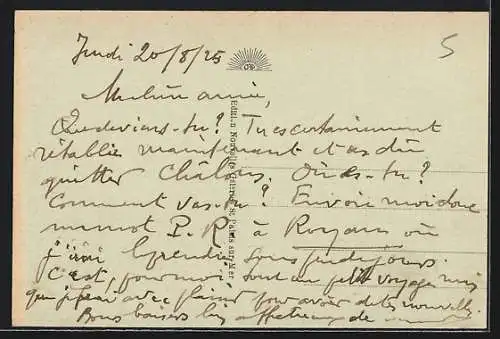 Jeudi 20/8/25
5
Ma chère amie,
Que deviens-tu? Tu es certainement
rétablie maintenant et as dû
quitter Châlons. Où es-tu?
Comment vas-tu? Envoie moi donc
un mot P. R à Royan où
j'irai le prendre sous peu de jours.
C'est, pour moi, tout un petit voyage mais
que je ferai avec plaisir pour avoir de tes nouvelles.
Bons baisers affectueux de
Nouvelles St Palais sur-Mer